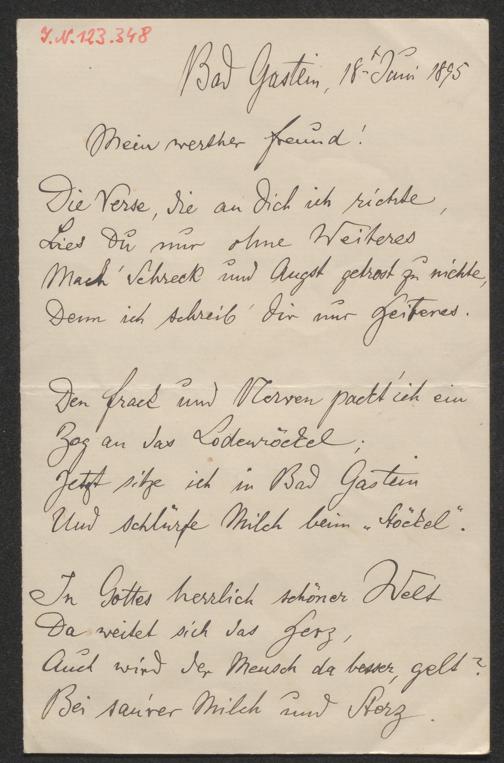 J.N. 123.348
Bad Gastein, 18t Juni 1895
Mein werther Freund!
Die Verse, die an Dich ich richte,
Lies Du nur ohne Weiteres
Mach' Schreck und Angst getrost zu nichte,
Denn ich schreib' Dir nur Heiteres.
Den Frack und Nerven packt' ich ein
Zog an das Lodenröckel;
Jetzt sitze ich in Bad Gastein
Und schlürfe Milch beim „Stöckel".
In Gottes herrlich schöner Welt
Da weitet sich das Herz,
Auch wird der Mensch da besser, gelt?
Bei saurer Milch und Sterz.